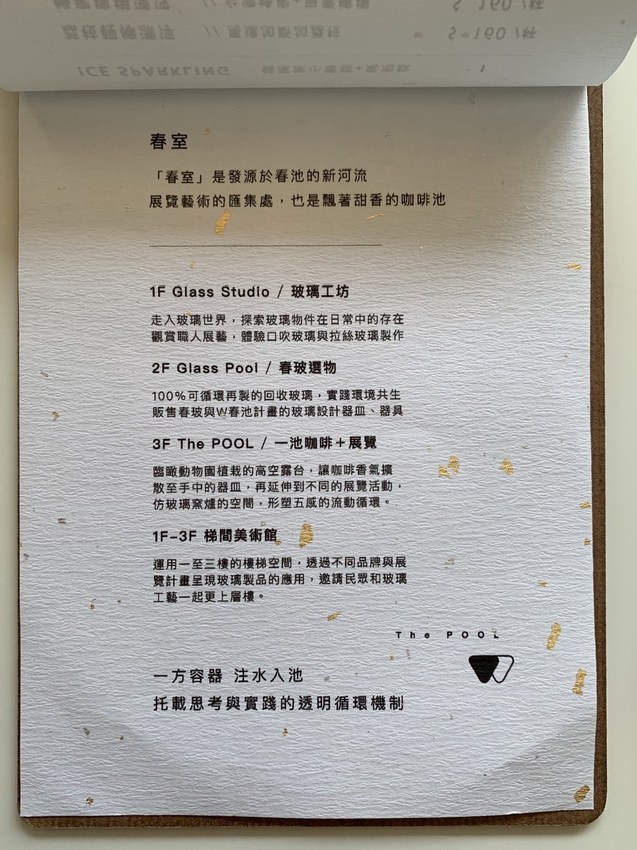 ICE SPARKLING
$ 160 /杯
$ 160 /杯
春室
「春室」是發源於春池的新河流
展覽藝術的匯集處，也是飄著甜香的咖啡池
1F Glass Studio / 玻璃工坊
走入玻璃世界，探索玻璃物件在日常中的存在
觀賞職人展藝，體驗口吹玻璃與拉絲玻璃製作
2F Glass Pool / 春玻選物
100%可循環再製的回收玻璃，實踐環境共生
販售春玻與W春池計畫的玻璃設計器皿、器具
3F The POOL / 一池咖啡＋展覽
臨瞰動物園植栽的高空露台，讓咖啡香氣擴
散至手中的器皿，再延伸到不同的展覽活動，
仿玻璃窯爐的空間，形塑五感的流動循環。
1F–3F 梯間美術館
運用一至三樓的樓梯空間，透過不同品牌與展
覽計畫呈現玻璃製品的應用，邀請民眾和玻璃
工藝一起更上層樓。
The POOL
一方容器 注水入池
托載思考與實踐的透明循環機制